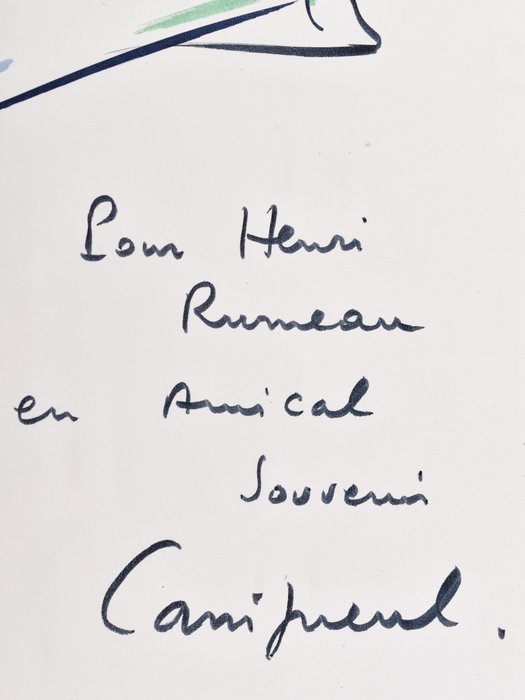 Pour Henri
Rumeau
en Amical
Souvenir
Camifreul.